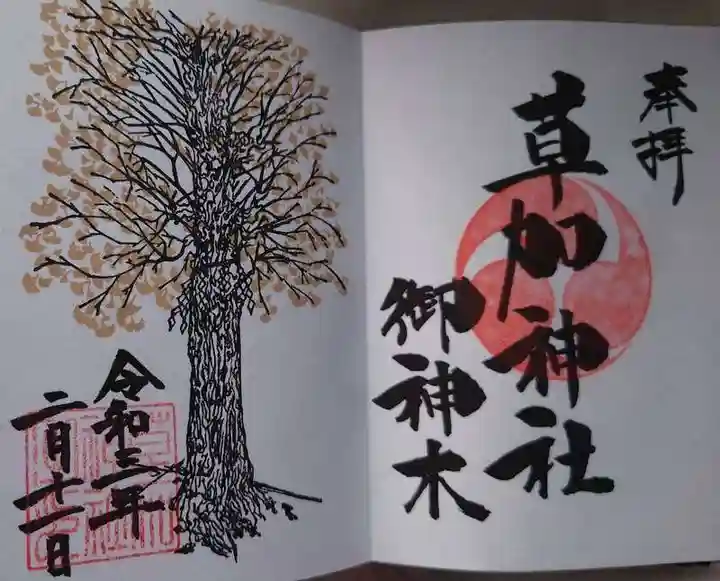 奉拝
草加神社
御神木
令和三年
二月十一日